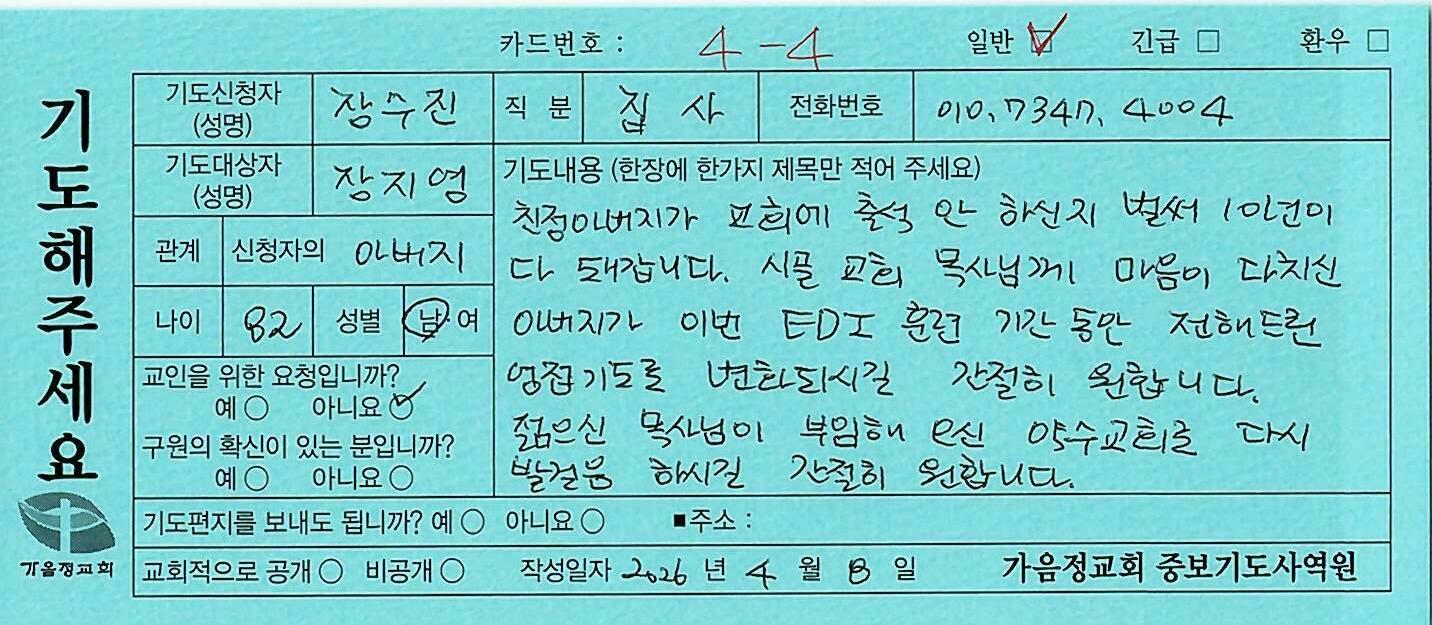 카드번호 : 4-4 일반 ☑ 긴급 □ 환우 □
기도해주세요
가음정교회
기도신청자 (성명) 장수진 직 분 집 사 전화번호 010. 7347. 4004
기도대상자 (성명) 장지영
관계 신청자의 아버지
나이 82 성별 남 여
교인을 위한 요청입니까?
예 ○ 아니요 ○
구원의 확신이 있는 분입니까?
예 ○ 아니요 ○
기도내용 (한장에 한가지 제목만 적어 주세요)
친정아버지가 교회에 출석 안 하신지 벌써 10년이
다 돼갑니다. 시골 교회 목사님께 마음이 다치신
아버지가 이번 EDI 훈련 기간 동안 전해드린
영접기도로 변화되시길 간절히 원합니다.
젊으신 목사님이 부임해 오신 약수교회로 다시
발걸음 하시길 간절히 원합니다.
기도편지를 보내도 됩니까? 예 ○ 아니요 ○ ■주소 :
교회적으로 공개 ○ 비공개 ○ 작성일자 2026 년 4 월 8 일 가음정교회 중보기도사역원